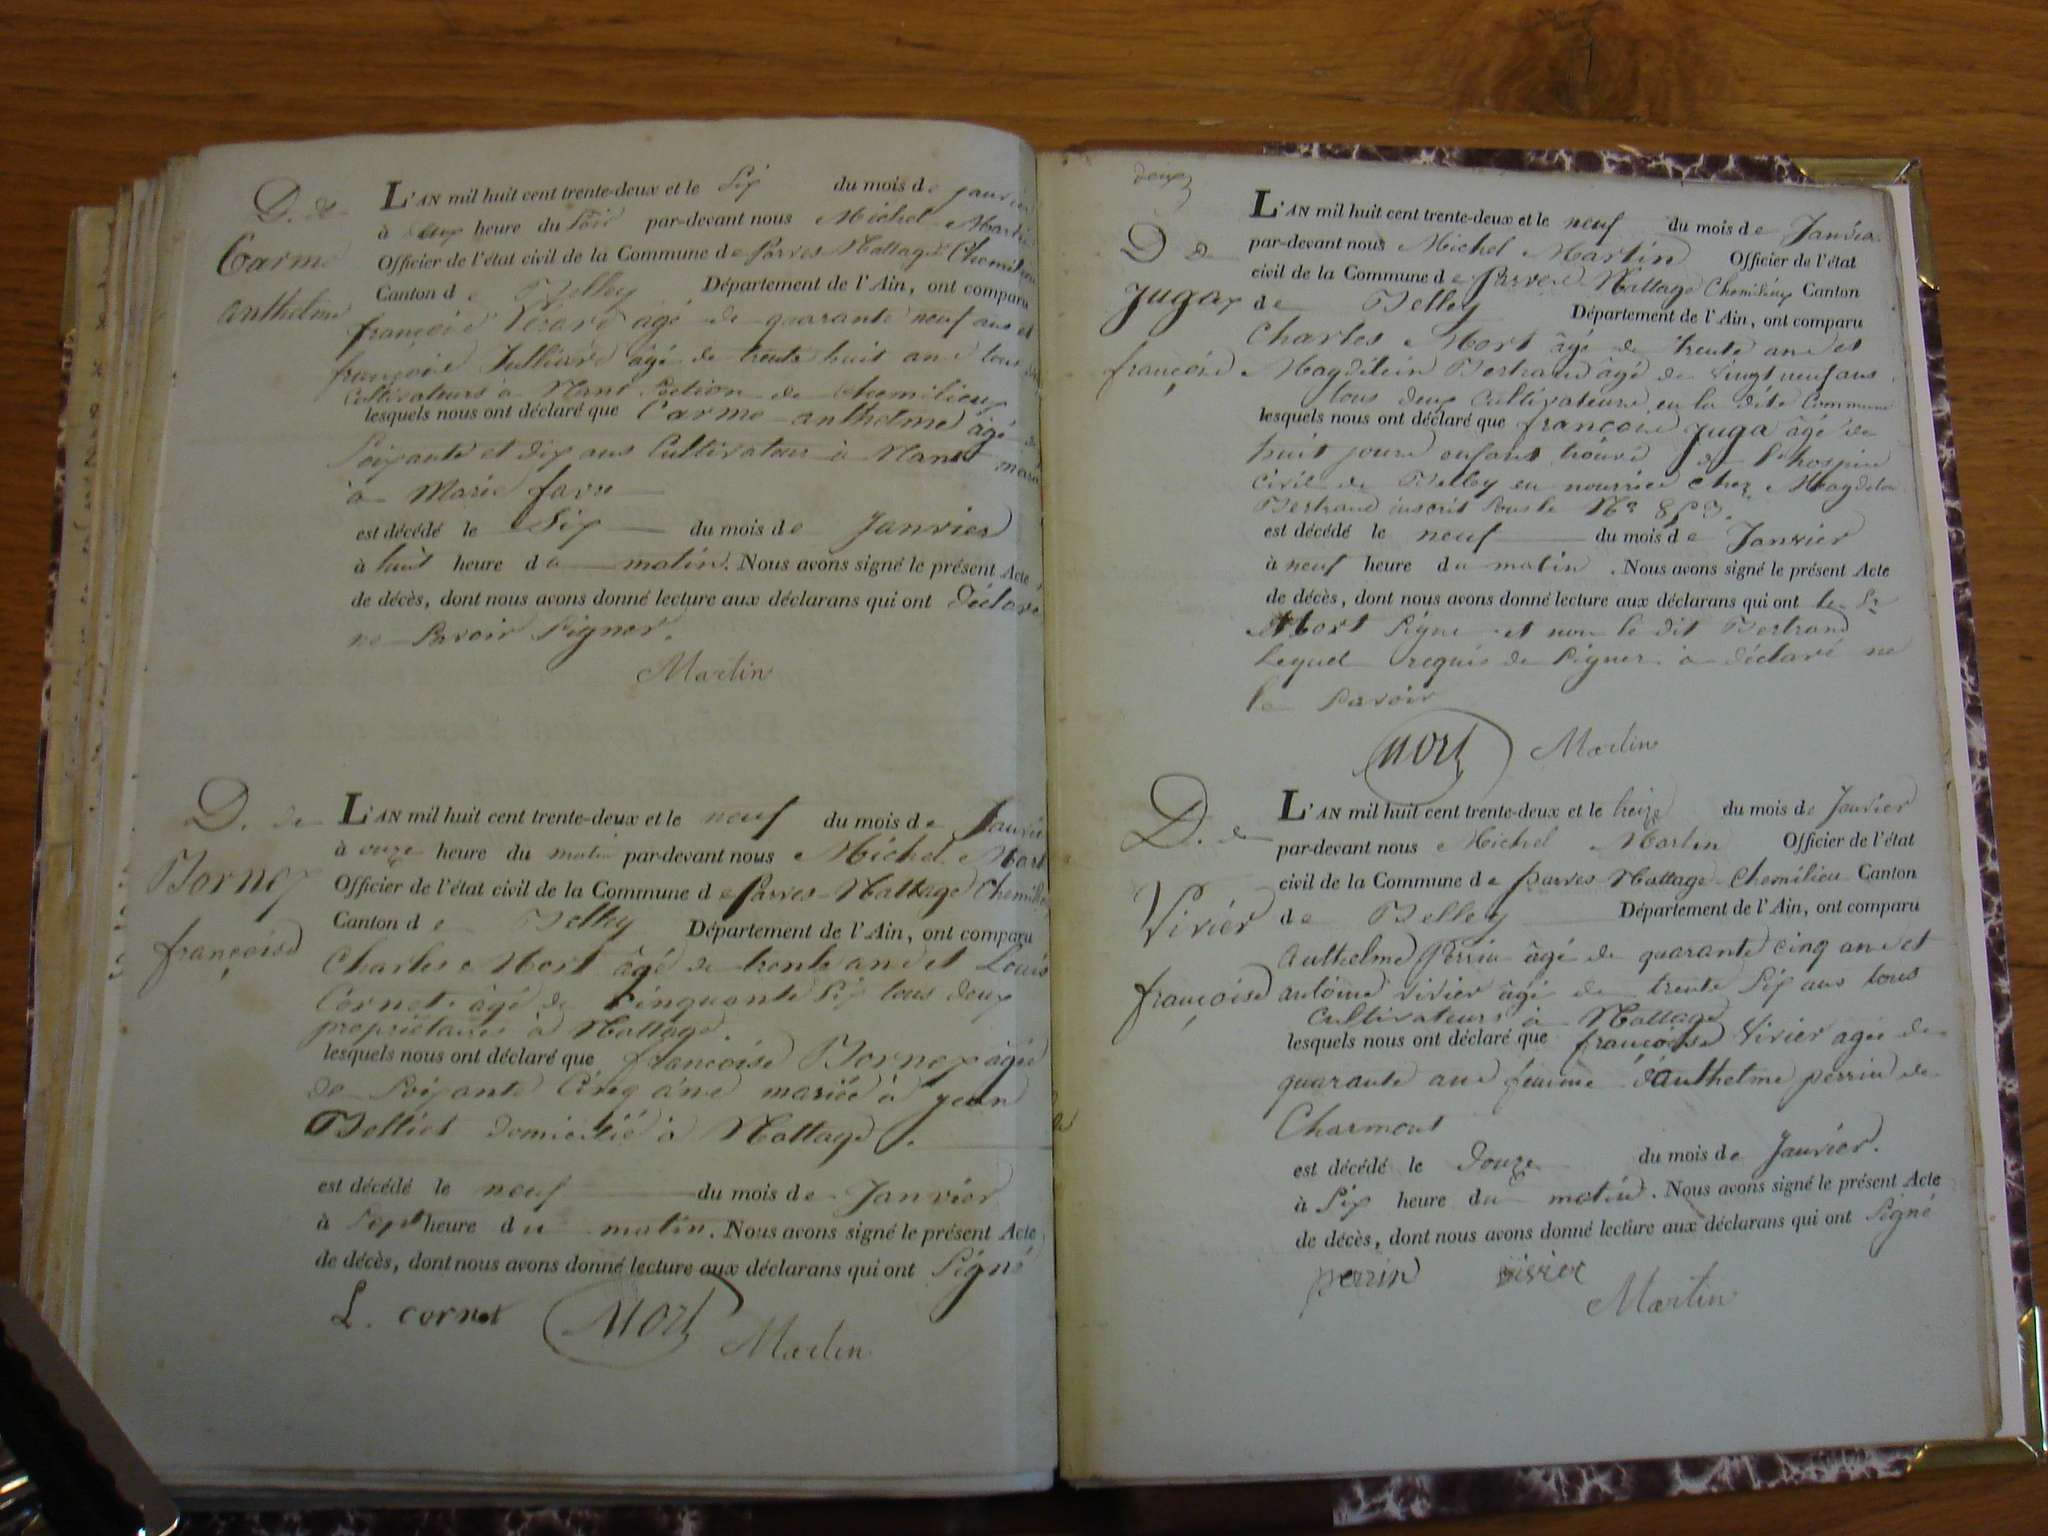 D. de
Carme
anthelme
L'AN mil huit cent trente-deux et le Six du mois de janvier
à heure du Soir par-devant nous Michel Martin
Officier de l'état civil de la Commune de Parves Nattage Chemilieu
Canton de Belley Département de l'Ain, ont comparu
françois agé de quarante neuf ans et
françois Jullien agé de trente huit ans tous
Cultivateurs à Nant Section de Chemilieux
lesquels nous ont déclaré que Carme anthelme âgé de
Soixante et dix ans Cultivateur à Nant marié
à Marie favre
est décédé le Six du mois de Janvier
à huit heure du matin. Nous avons signé le présent Acte
de décès, dont nous avons donné lecture aux déclarans qui ont déclaré
ne Savoir Signer.
Martin
D. de
Bornex
françoise
L'AN mil huit cent trente-deux et le neuf du mois de Janvier
à onze heure du matin par-devant nous Michel Mart
Officier de l'état civil de la Commune de Parves-Nattage Chemilieu
Canton de Belley Département de l'Ain, ont comparu
Charles Mort âgé de trente ans et Louis
Cornet âgé de Cinquante Six tous deux
propriétaires à Nattage.
lesquels nous ont déclaré que françoise Bornex agée
de Soixante Cinq ans mariée à jean
Belliet domicilié à Nattage.
est décédé le neuf du mois de Janvier
à Sept heure du matin. Nous avons signé le présent Acte
de décès, dont nous avons donné lecture aux déclarans qui ont Signé
L. cornet Mort Martin
deux
D de
Jugax
françois
L'AN mil huit cent trente-deux et le neuf du mois de Janvier
par-devant nous Michel Martin Officier de l'état
civil de la Commune de Parves Nattage Chemilieux Canton
de Belley Département de l'Ain, ont comparu
Charles Mort âgé de trente ans et
Magdelein Bertrand âgé de vingt neuf ans
tous deux Cultivateurs en la dite Commune
lesquels nous ont déclaré que françois Juga âgé de
huit jours enfant trouvé de l'hospice
Civil de Belley en nourrice chez Magdelein
Bertrand inscrit Sous le No
est décédé le neuf du mois de Janvier
à neuf heure du matin. Nous avons signé le présent Acte
de décès, dont nous avons donné lecture aux déclarans qui ont le Sr
Mort Signé et non le dit Bertrand
lequel requis de Signer a déclaré ne
le Savoir
Mort Martin
D. de
Vivier
françoise
L'AN mil huit cent trente-deux et le treize du mois de Janvier
par-devant nous Michel Martin Officier de l'état
civil de la Commune de Parves Nattage Chemilieu Canton
de Belley Département de l'Ain, ont comparu
Anthelme Perrin âgé de quarante cinq ans et
antoine vivier âgé de trente Six ans tous
Cultivateurs à Nattage
lesquels nous ont déclaré que françoise Vivier agée de
quarante ans femme d'Anthelme perrin de
Charmont
est décédé le douze du mois de Janvier.
à Six heure du matin. Nous avons signé le présent Acte
de décès, dont nous avons donné lecture aux déclarans qui ont Signé
perrin vivier
Martin